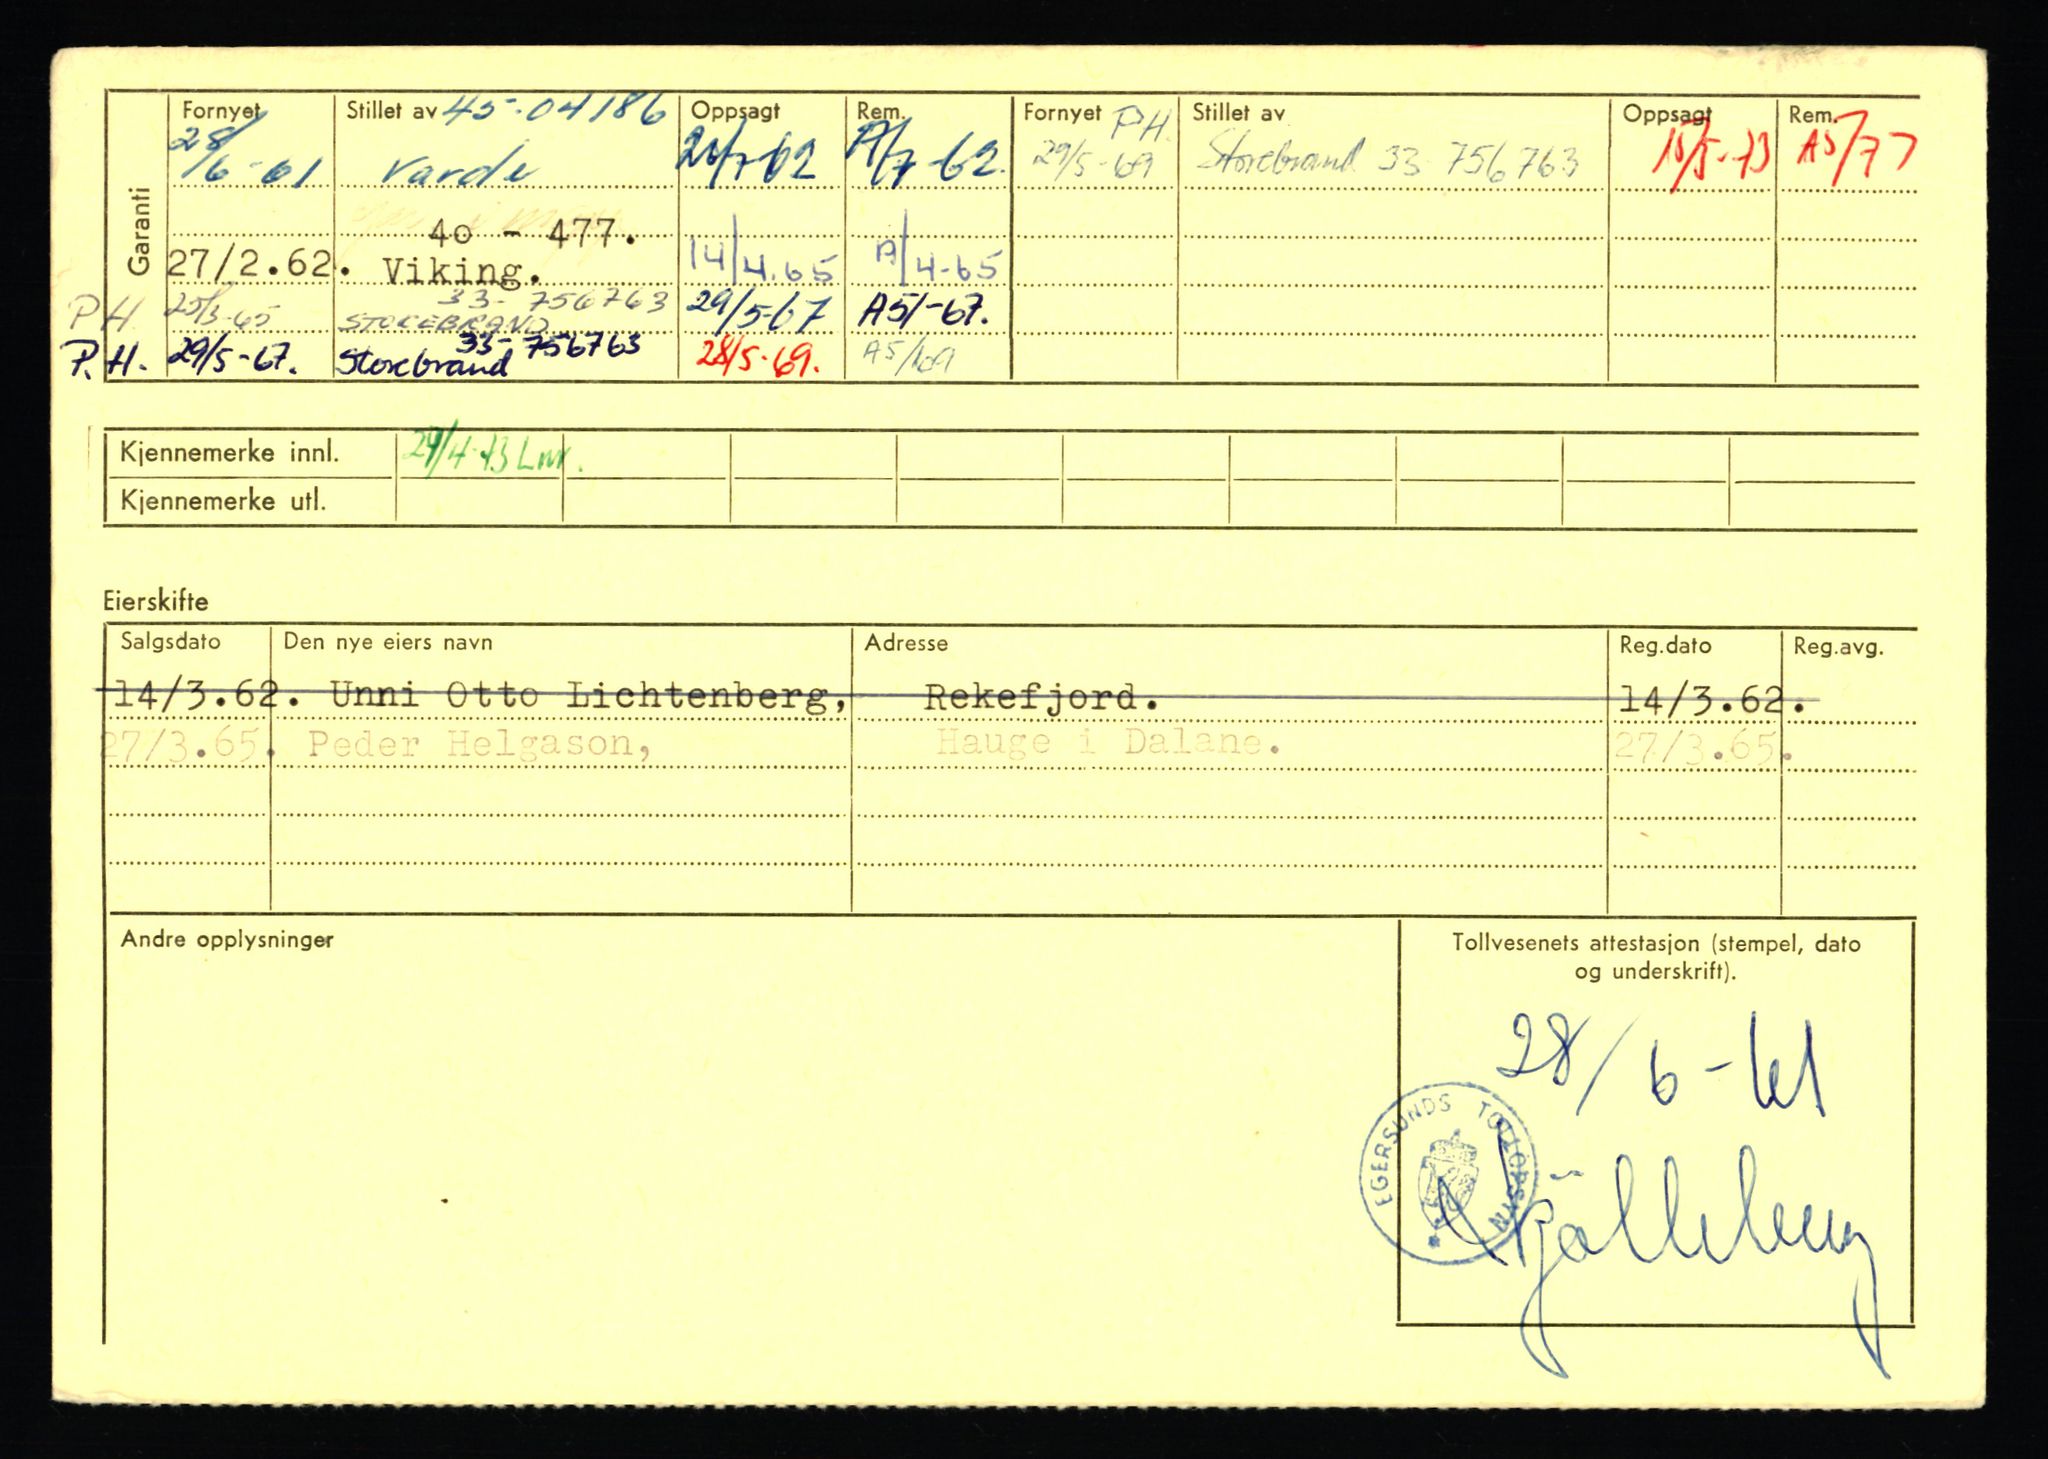 Garanti
Fornyet Stillet av 45-04186 Oppsagt Rem. Fornyet P.H. Stillet av Oppsagt Rem.
28/6-61 Varde /7-62 A/7-62. 29/5-69 Storebrand 33 756763 15/5-73 A5/77
40 - 477.
27/2.62. Viking. 14/4.65 A/4-65
33- 756763
P H 25/3-65 STOREBRAND 29/5-67 A5/-67.
33- 756763
P.H. 29/5-67. Storebrand 28/5-69. A5/69
Kjennemerke innl. 24/4-73 Lnv.
Kjennemerke utl.
Eierskifte
Salgsdato Den nye eiers navn Adresse Reg.dato Reg.avg.
14/3.62. Unni Otto Lichtenberg, Rekefjord. 14/3.62.
27/3.65. Peder Helgason, Hauge i Dalane. 27/3.65.
Andre opplysninger
Tollvesenets attestasjon (stempel, dato
og underskrift).
28/6-61
EGERSUNDS TOLLOPPSYN